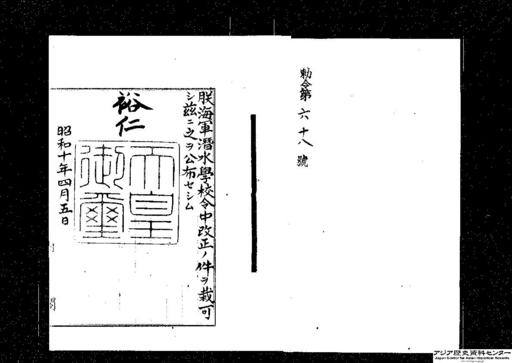 勅令第六十八號
朕海軍潛水學校令中改正ノ件ヲ裁可
シ茲ニ之ヲ公布セシム
裕仁
天皇御璽
昭和十年四月五日
アジア歴史資料センター
Japan Center for Asian Historical Records